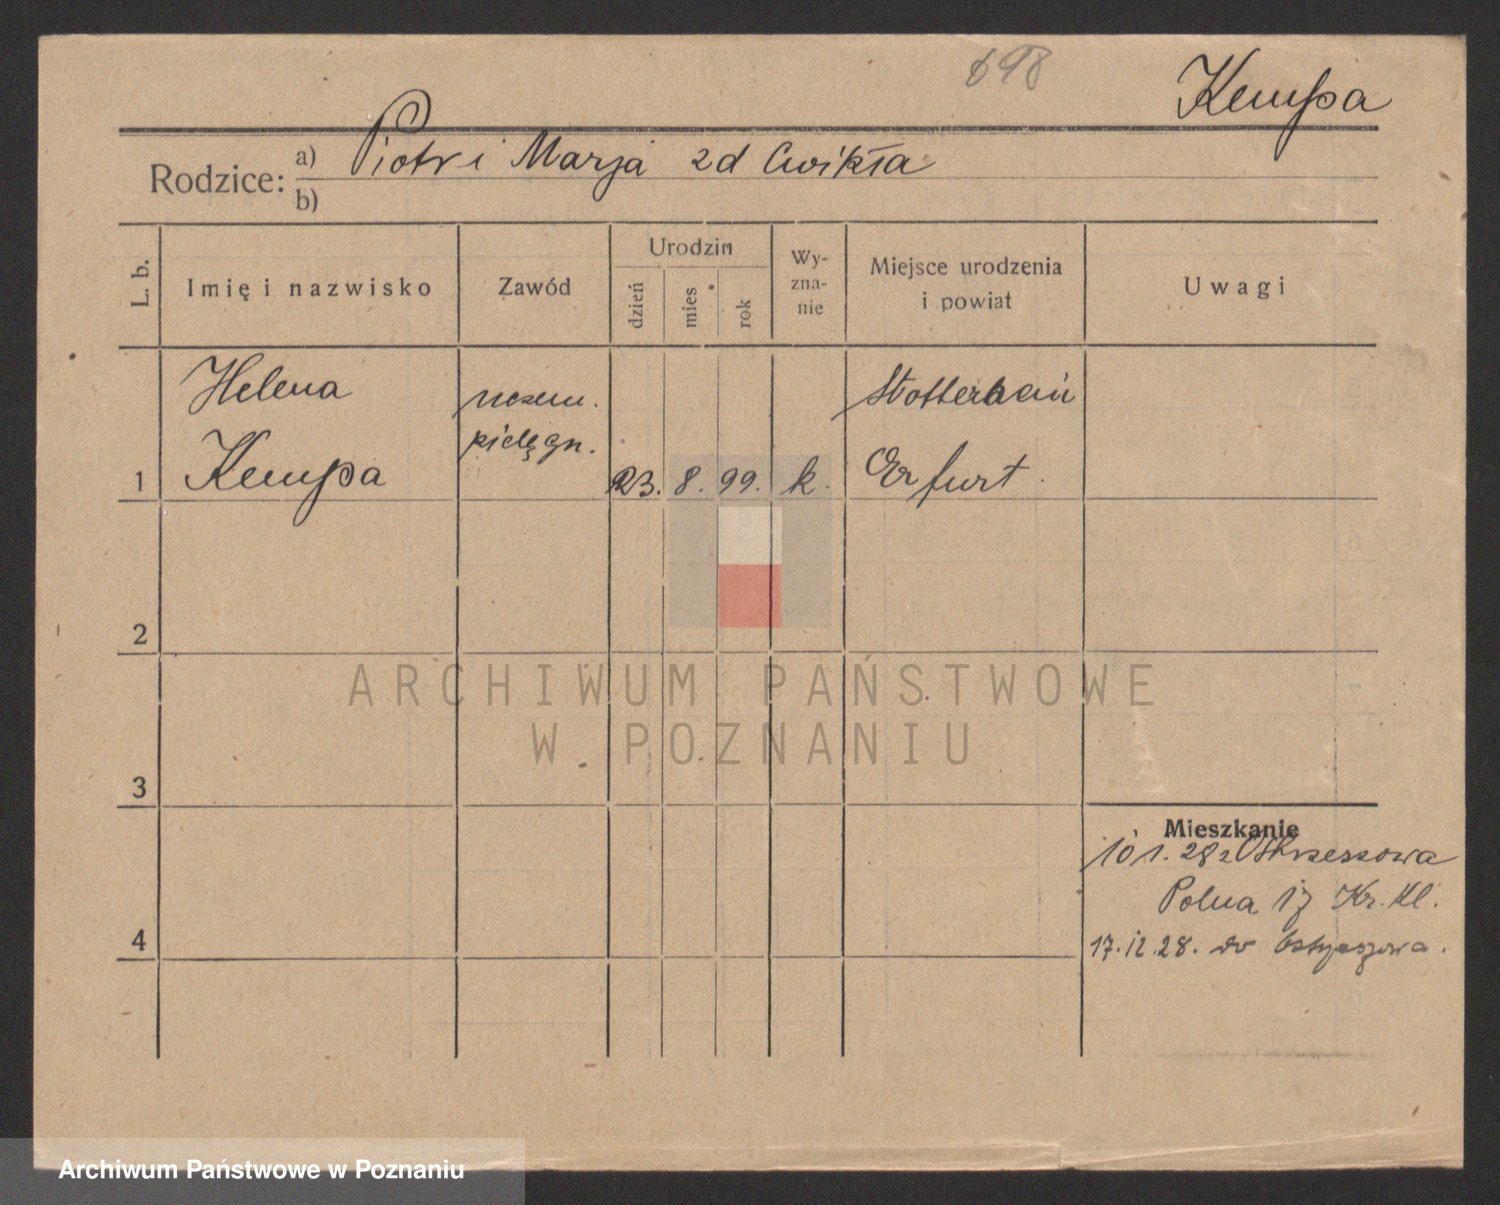 698
Kempa
Rodzice: a) Piotr i Marja zd Ćwikła
b)
L. b.
Imię i nazwisko
Zawód
Urodzin
dzień
mies
rok
Wy-
zna-
nie
Miejsce urodzenia
i powiat
Uwagi
Helena
Kempa
uczen.
pielęgn.
23. 8. 99.
k.
Erfurt.
1
2
3
4
ARCHIWUM PAŃSTWOWE
W POZNANIU
Mieszkanie
10 1. 28 z Ostrzeszowa
Polna 17 Kr. Kl.
17.12.28. do Ostrzeszowa.
Archiwum Państwowe w Poznaniu